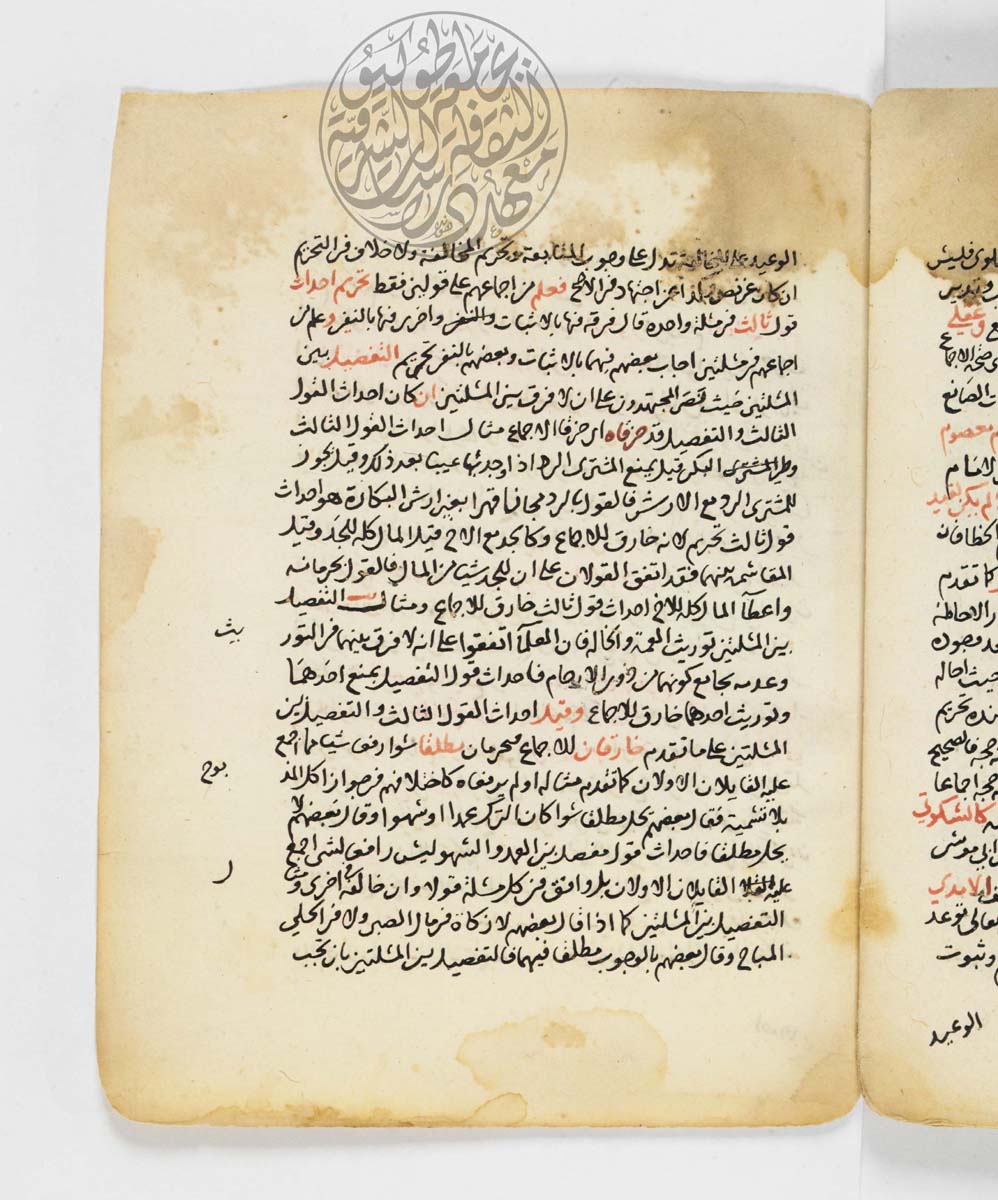 الوعيد على المخالفة تدل على وجوب المتابعة وتحريم المخالفة ولا خلاف في التحريم
ان كان عن نص وكذا عن اجتهاد في الاصح فعلم من اجماعهم على قولين فقط تحريم احداث
قول ثالث في مسئلة واحدة قال فرقة فيها بالاثبات واخرى فيها بالنفي وعلم من
اجماعهم في مسئلتين اجاب بعضهم فيهما بالاثبات وبعضهم بالنفي تحريم التفصيل بين
المسئلتين حيث نص المجتهدون على ان لا فرق بين المسئلتين ان كان احداث القول
الثالث والتفصيل قد خرقاه اي خرقا الاجماع مثال احداث القول الثالث
وطي المشتري البكر قيل يمنع المشتري الرد اذا وجد بها عيبا بعد ذلك وقيل يجوز
للمشتري الرد مع الارش فالقول بالرد مجانا قهرا بغير ارش البكارة هو احداث
قول ثالث تحريم لانه خارق للاجماع وكالجد مع الاخ قيل المال كله للجد وقيل
المقاسمة بينهما فقد اتفق القولان على ان للجد شيا من المال فالقول بحرمانه
واعطآ المال كله للاخ احداث قول ثالث خارق للاجماع ومثال التفصيل
بين المسئلتين توريث العمة والخالة فان العلمآ اتفقوا على انه لا فرق بينهما في التوريث
وعدمه بجامع كونهما من ذوي الارحام فاحداث قول التفصيل بمنع احدهما
وتوريث احدهما خارق للاجماع وقيل احداث القول الثالث والتفصيل بين
المسئلتين على ما تقدم خارقان للاجماع فيحرمان مطلقا سوا رفعا شيا مما اجمع
عليه القايلان الاولان كما تقدم مثاله او لم يرفعاه كاختلافهم في جواز اكل المذبوح
بلا تسمية فقال بعضهم يحل مطلقا سوا كان الترك عمدا او سهوا وقال بعضهم لا
يحل مطلقا فاحداث قول مفصل بين العمد والسهو ليس رافع لشي اجمع
عليه القايلان الاولان بل وافق في كل مسئلة قولا وان خالفه في اخرى ومثال
التفصيل بين المسئلتين كما اذا قال بعضهم لا زكاة في مال الصبي ولا في الحلي
المباح وقال بعضهم بالوجوب مطلقا فيهما فالتفصيل بين المسئلتين بان تجب
يث
بوح
ر
الوعيد